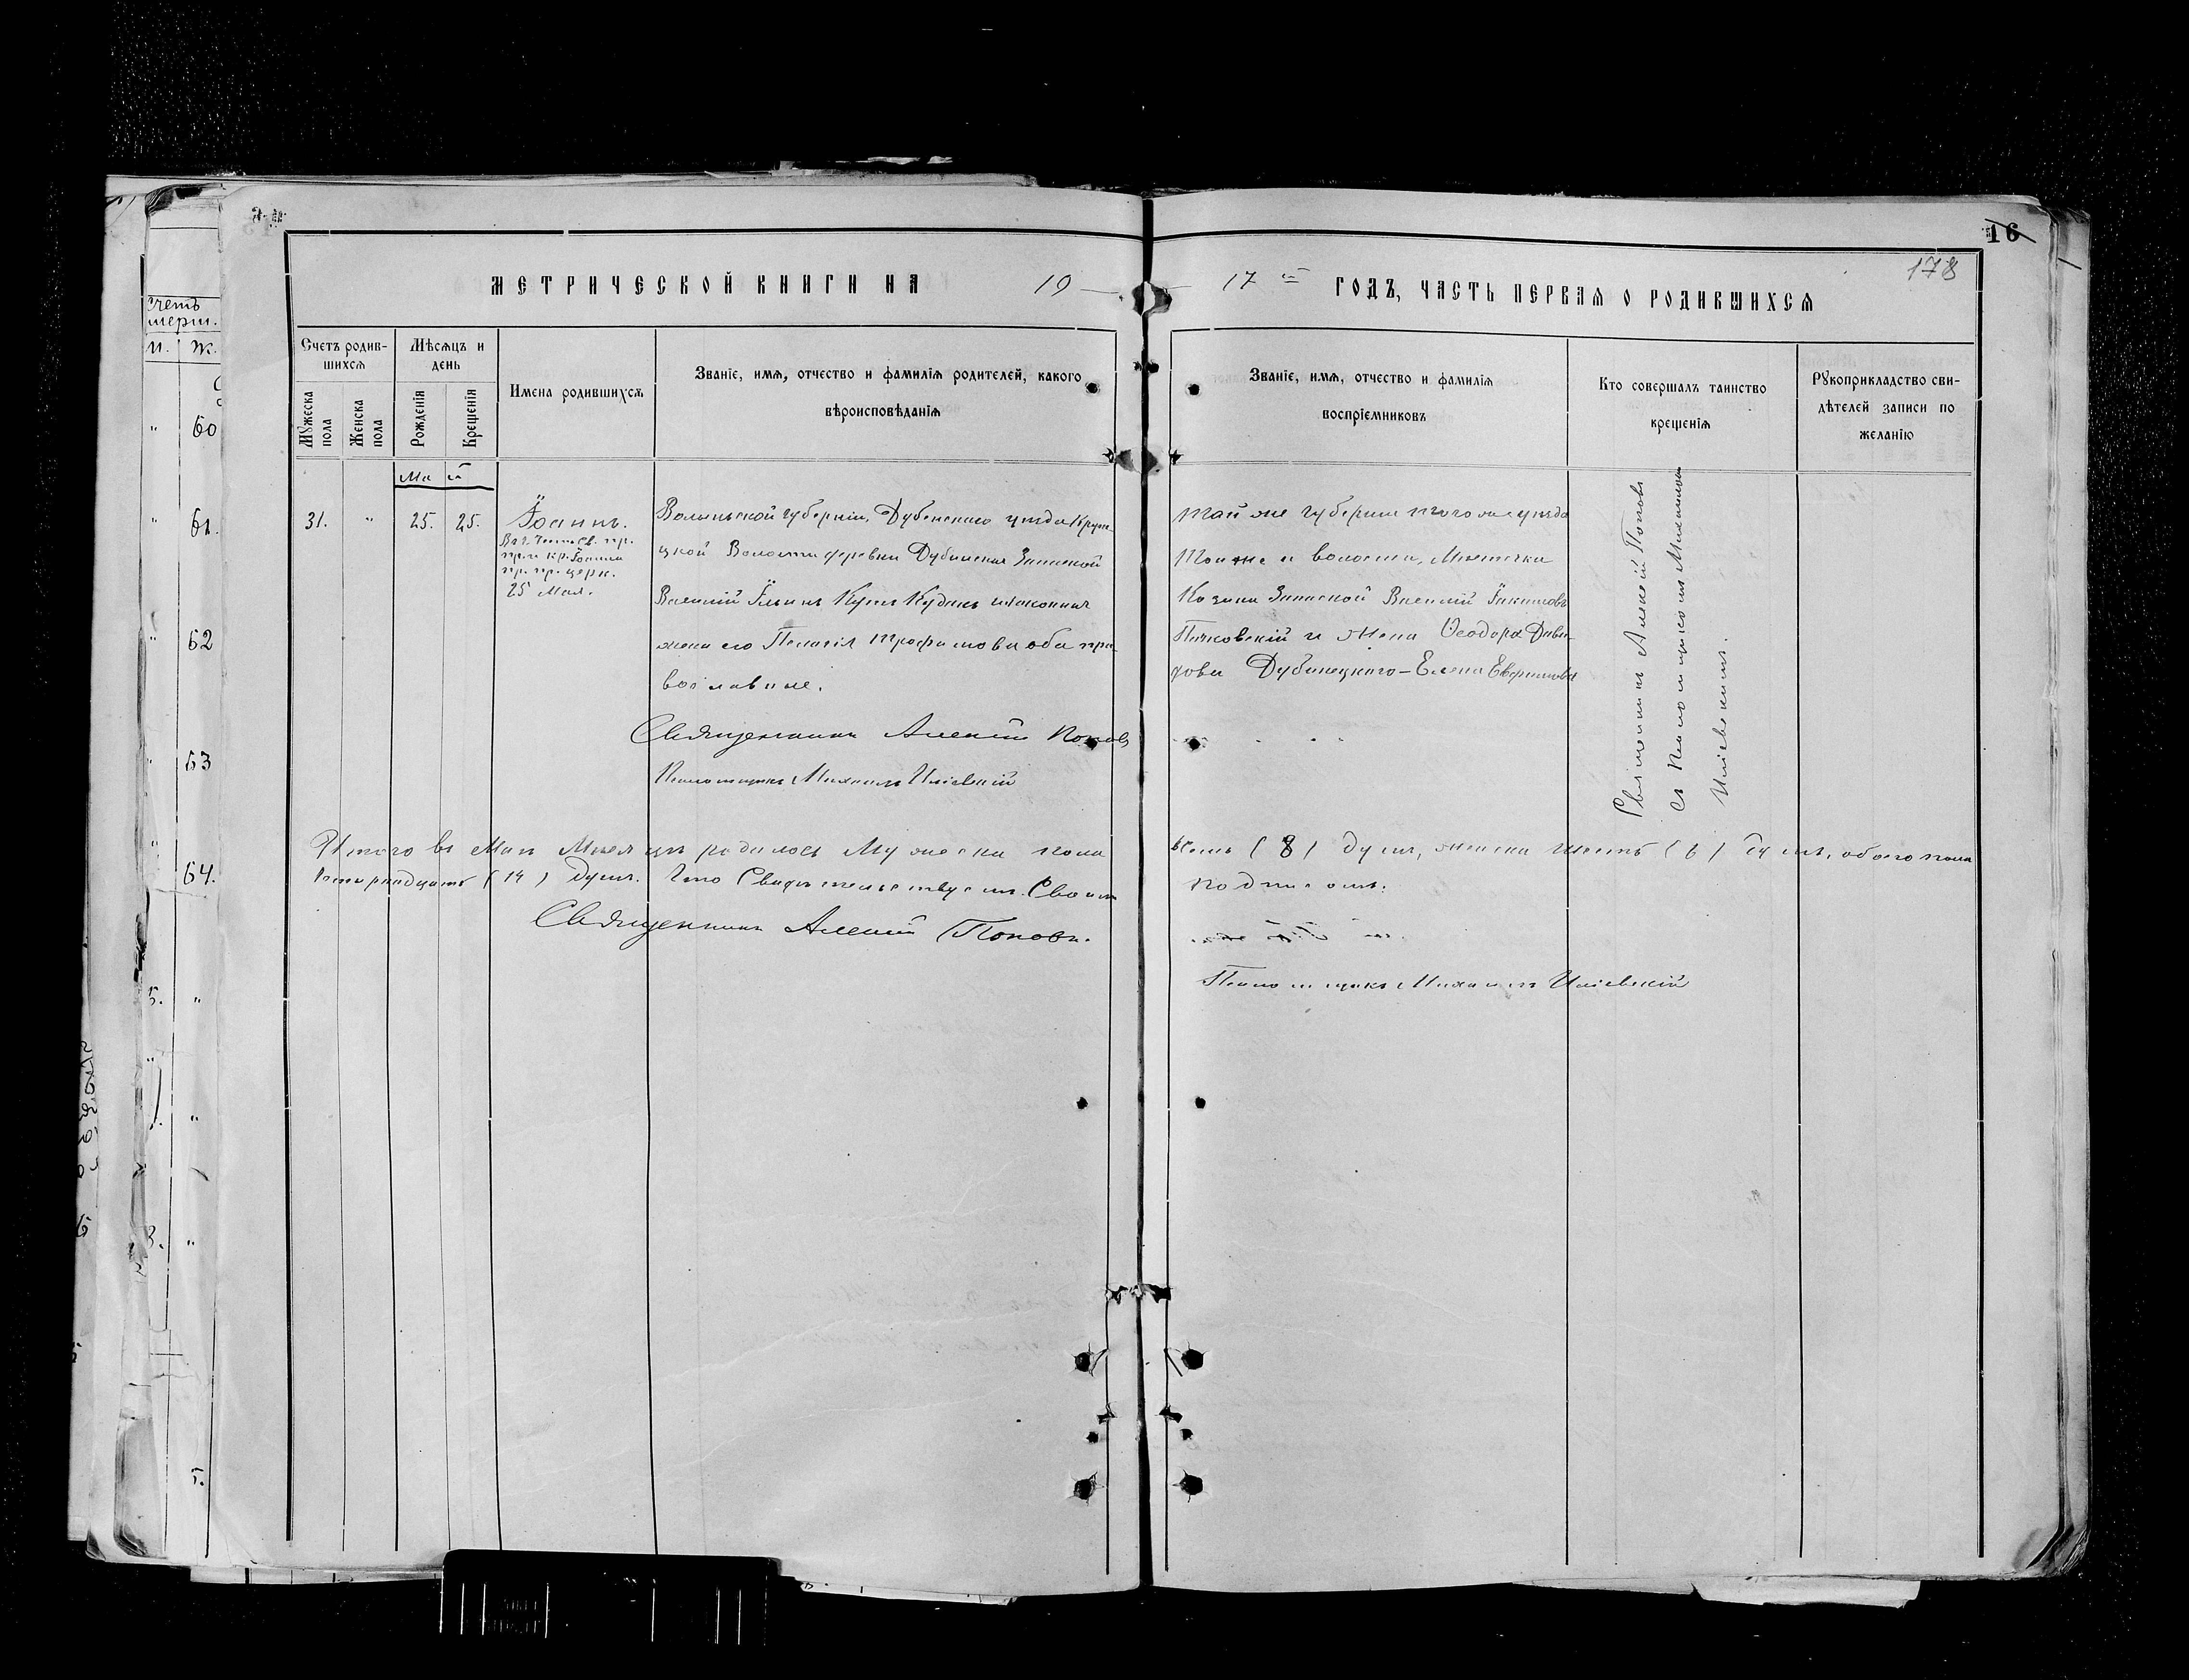 16
178
МЕТРИЧЕСКОЙ КНИГИ НА 19
17 й ГОДЪ, ЧАСТЬ ПЕРВАЯ О РОДИВШИХСЯ
Счетъ родив-
шихся
Мѣсяцъ и
день
Мужеска
пола
Женска
пола
Рожденія
Крещенія
Имена родившихся
Званіе, имя, отчество и фамилія родителей, какого
вѣроисповѣданія
Званіе, имя, отчество и фамилія
воспріемниковъ
Кто совершалъ таинство
крещенія
Рукоприкладство сви-
дѣтелей записи по
желанію
Май
31. " 25. 25.
Іоаннъ.
25 Мая.
Волынской губерніи, Дубенскаго уѣзда
цкой Волости деревни Запасной
Василій законная
жена его Пелагія Трофимова оба пра-
вославные.
Священникъ Алексій Поповъ
Псаломщикъ Михаилъ
той же губерніи того же уѣзда
той же и волости, Мѣстечка
Козина Запасной Василій
и жена Ѳеодора Дави-
дова Дубинецкаго - Елена
Священникъ Алексій Поповъ
съ Псаломщикомъ Михаиломъ
Итого въ Маѣ Мѣсяцѣ родилось Мужеска пола
восемь (8) душъ, женска шесть (6) душъ, обоего пола
четырнадцать (14) душъ. Что Свидѣтельствуемъ Своимъ
подписомъ:
Священникъ Алексій Поповъ.
Псаломщикъ Михаилъ
счетъ
мерт.
м. ж.
60
61.
62
63
64.